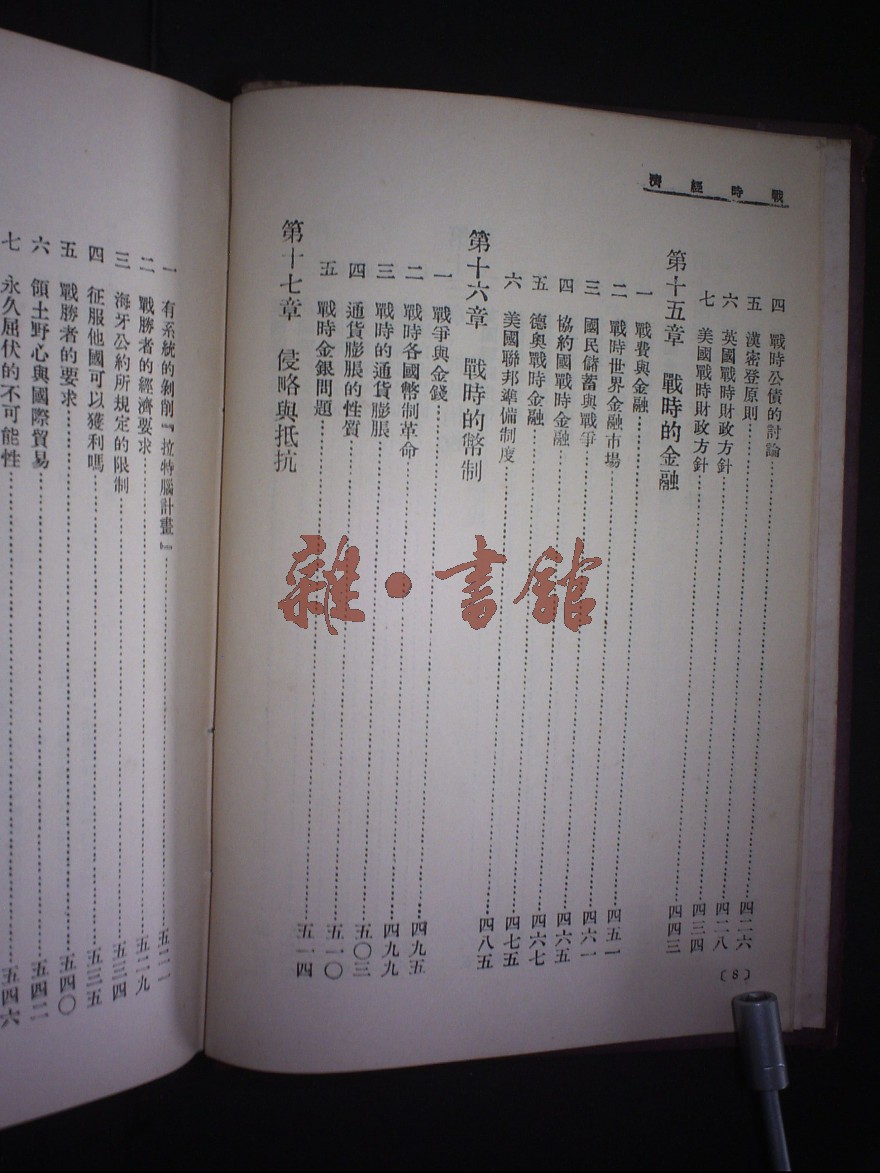 戰時經濟
四 戰時公債的討論……四二六
五 漢密登原則……四二八
六 英國戰時財政方針……四三四
七 美國戰時財政方針……四四三
第十五章 戰時的金融
一 戰費與金融……四五一
二 戰時世界金融市場……四六一
三 國民儲蓄與戰爭……四六五
四 協約國戰時金融……四六七
五 德奧戰時金融……四七五
六 美國聯邦準備制度……四八五
第十六章 戰時的幣制
一 戰爭與金錢……四九五
二 戰時各國幣制革命……四九九
三 戰時的通貨膨脹……五〇三
四 通貨膨脹的性質……五一〇
五 戰時金銀問題……五一四
第十七章 侵略與抵抗
(8)
一 有系統的剝削『拉特腦計畫』……五二一
二 戰勝者的經濟要求……五二九
三 海牙公約所規定的限制……五三四
四 征服他國可以獲利嗎……五三五
五 戰勝者的要求……五四〇
六 領土野心與國際貿易……五四二
七 永久屈伏的不可能性……五四六
雜·書館